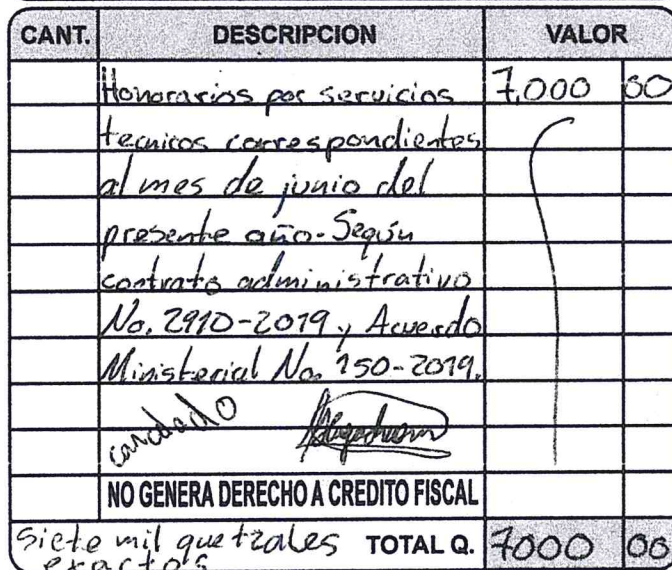 CANT. DESCRIPCION VALOR
Honorarios por servicios 7,000 00
tecnicos correspondientes
al mes de junio del
presente año-Según
contrato administrativo
No. 2910-2019 y Acuerdo
Ministerial No. 150-2019.
cancelado
NO GENERA DERECHO A CREDITO FISCAL
Siete mil quetzales TOTAL Q. 7000 00
exactos